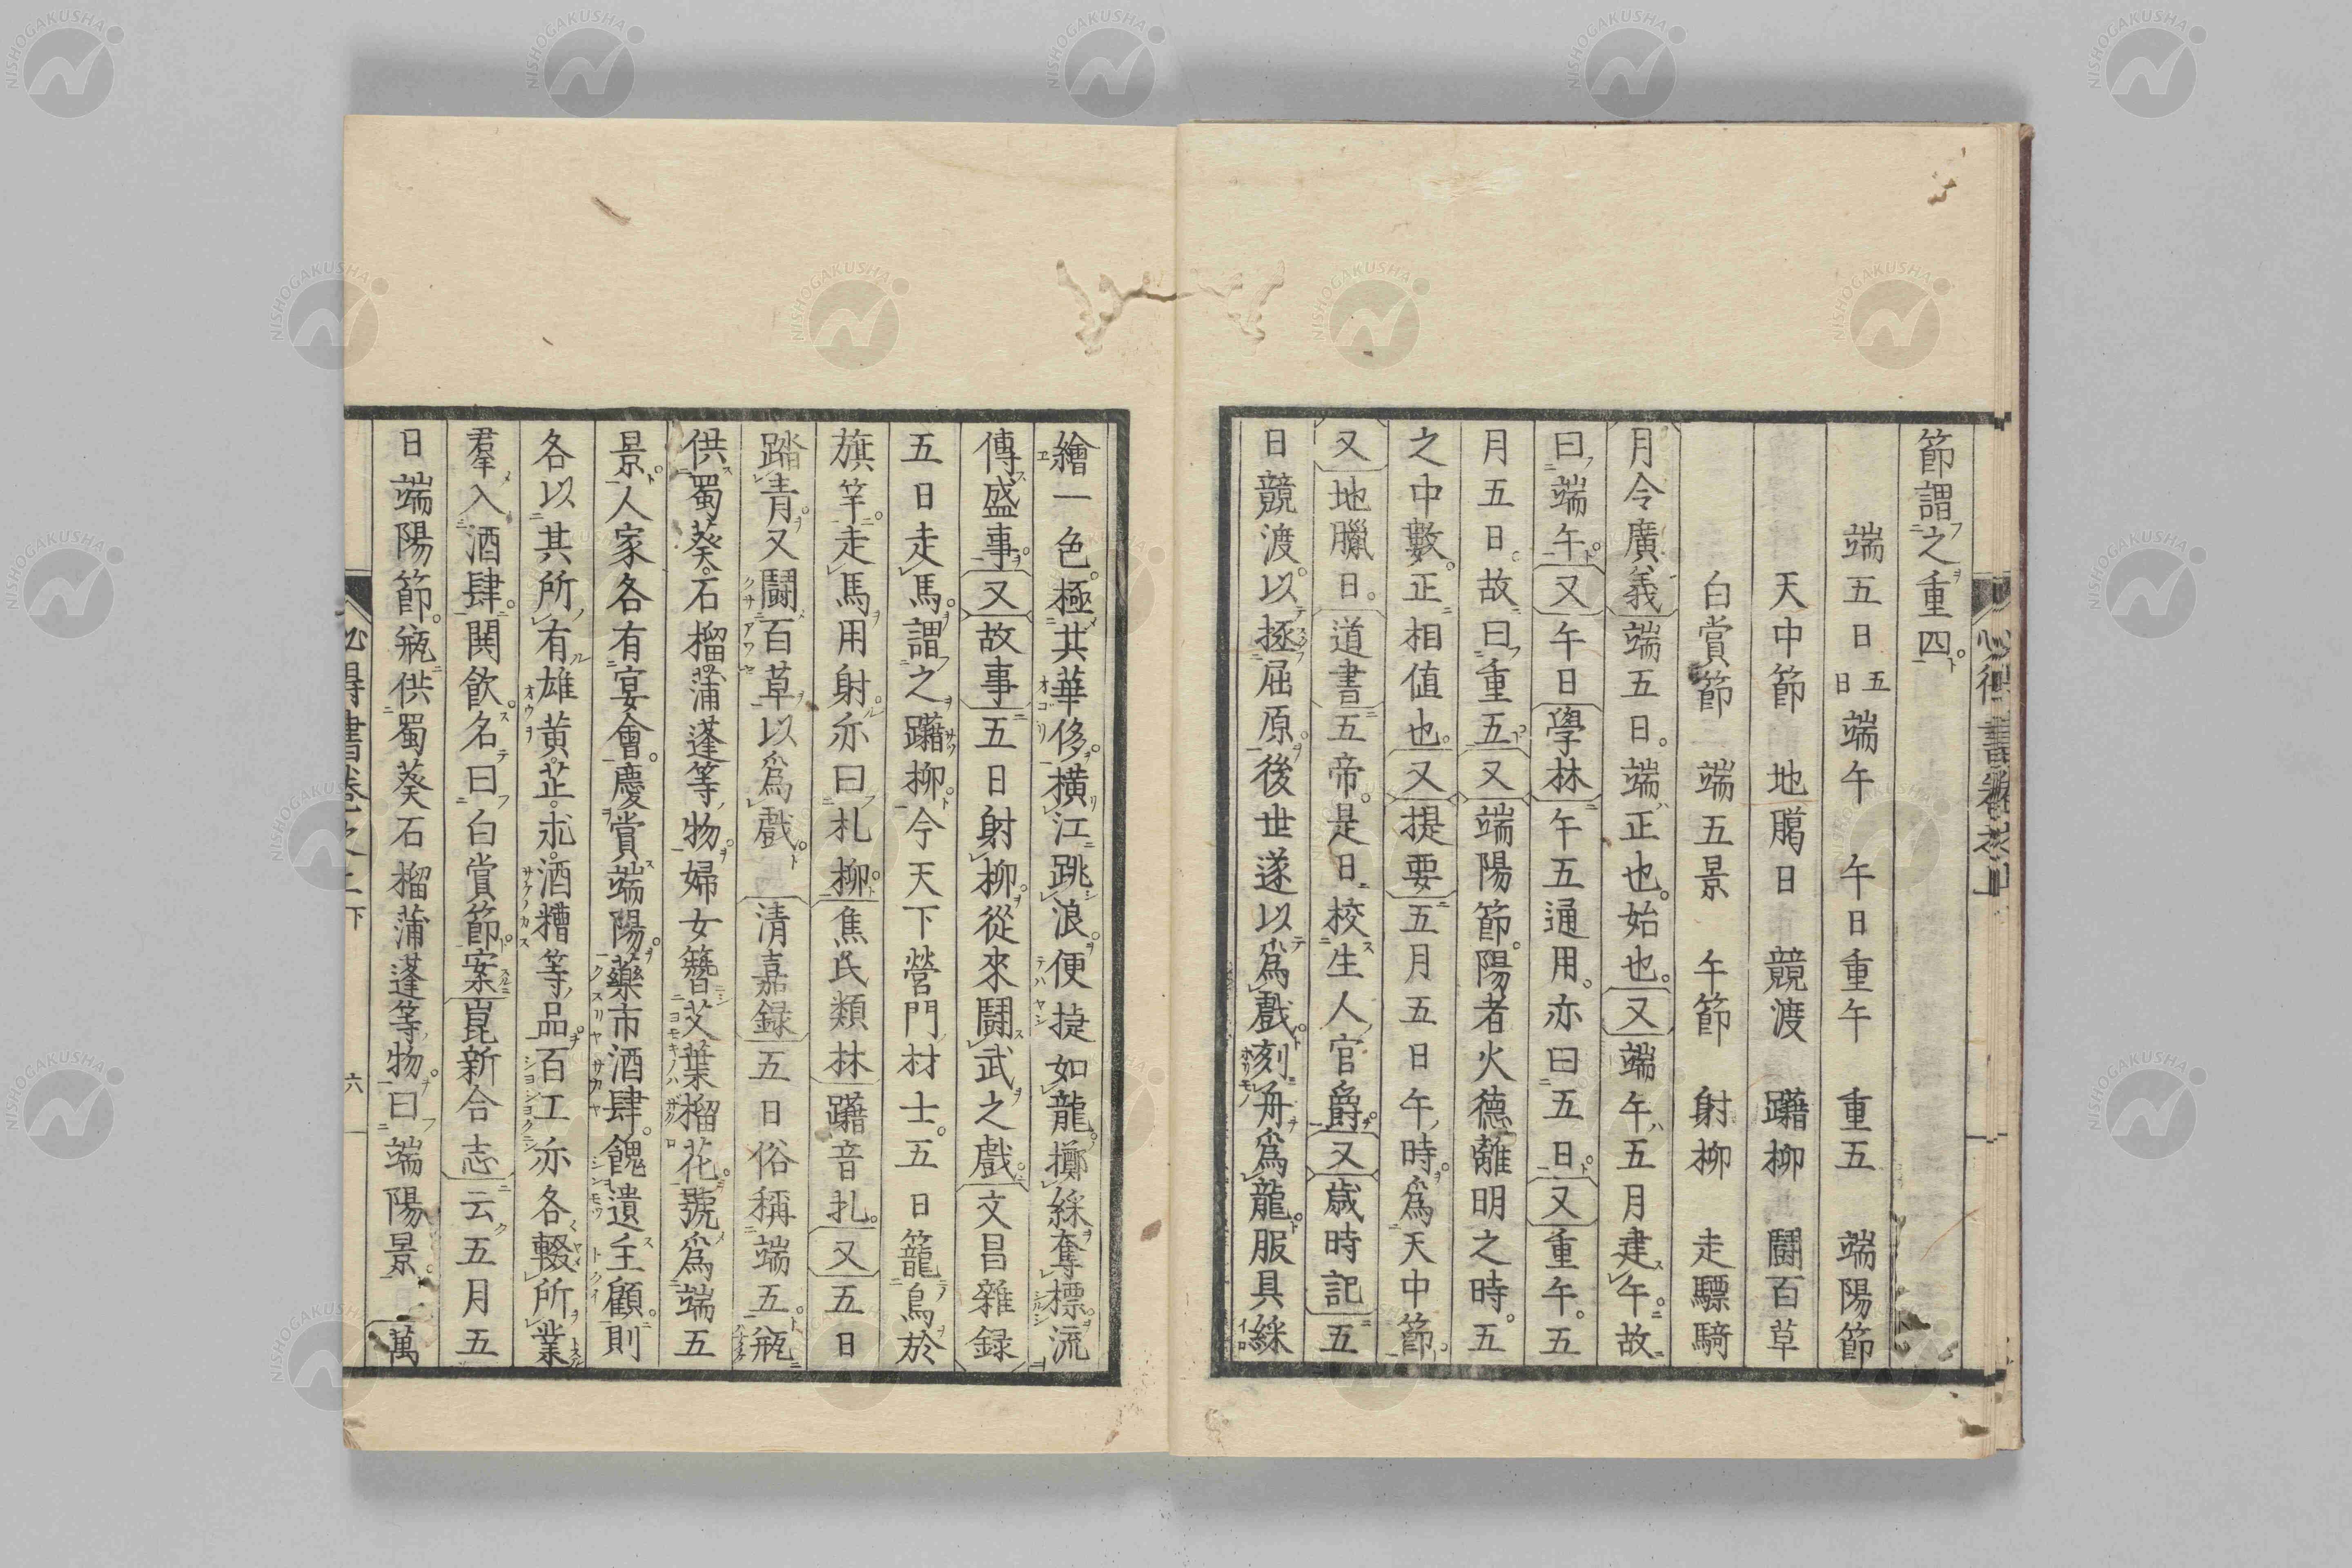 節謂之重四
端五日 五日 端午 午日重午 重五 端陽節
天中節 地臈日 競渡 躤柳 鬪百草
白賞節 端五景 午節 射柳 走驃騎
月令廣義端五日端正也始也又端午五月建午故
曰端午又午日學林午五通用亦曰五日又重午五
月五日故曰重五又端陽節陽者火德離明之時五
之中數正相值也又提要五月五日午時爲天中節
又地臘日道書五帝是日校生人官爵又歲時記五
日競渡以拯屈原後世遂以爲戲刻舟爲龍服具綵
繪一色極其華侈橫江跳浪便捷如龍擲綵奪標流
傳盛事又故事五日射柳從來鬪武之戲文昌雜録
五日走馬謂之躤柳今天下營門材士五日籠鳥於
旗竿走馬用射亦曰札柳焦氏類林躤音扎又五日
踏青又鬪百草以爲戲 清嘉録五日俗稱端五瓶
供蜀葵石榴蒲蓬等物婦女簪艾葉榴花號爲端五
景人家各有宴會慶賞端陽藥市酒肆餽遺主顧則
各以其所有雄黃芷朮酒糟等品百工亦各輟所業
羣入酒肆鬨飲名曰白賞節案崑新合志云五月五
日端陽節瓶供蜀葵石榴蒲蓬等物曰端陽景 萬
心得書卷之上下 六